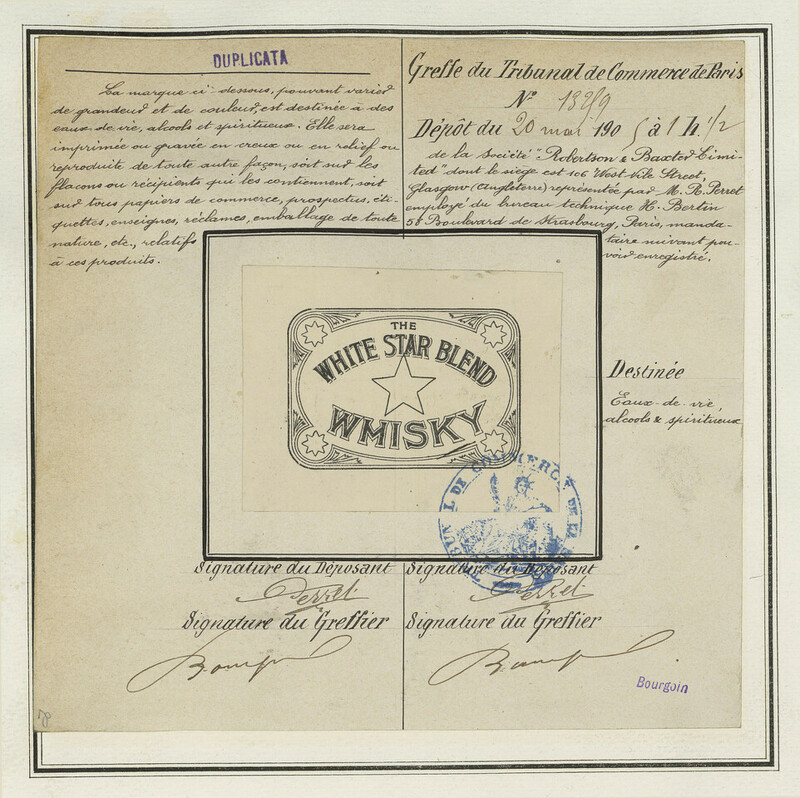 DUPLICATA
La marque ci-dessous, pouvant varier
de grandeur et de couleur, est destinée à des
eaux-de-vie, alcools et spiritueux. Elle sera
imprimée ou gravée en creux ou en relief ou
reproduite de toute autre façon, soit sur les
flacons ou récipients qui les contiennent, soit
sur tous papiers de commerce, prospectus, éti-
quettes, enseignes, réclames, emballage de toute
nature, etc., relatifs
à ces produits.
Greffe du Tribunal de Commerce de Paris
N°
Dépôt du 20 mai 190 5 à 1 h. 1/2
de la Société "Robertson & Baxter Limi-
ted" dont le siège est 106 West Nile Street,
Glasgow (Angleterre) représentée par M. R. Perret
employé du bureau technique H. Bertin
58 Boulevard de Strasbourg, Paris, manda-
taire suivant pou-
voir enregistré.
THE
WHITE STAR BLEND
WMISKY
Destinée
Eaux-de-vie,
alcools & spiritueux
TRIBUNAL DE COMMERCE DE LA
Signature du Déposant
Signature du Déposant
Perret
Perret
Signature du Greffier
Signature du Greffier
Bourgoin